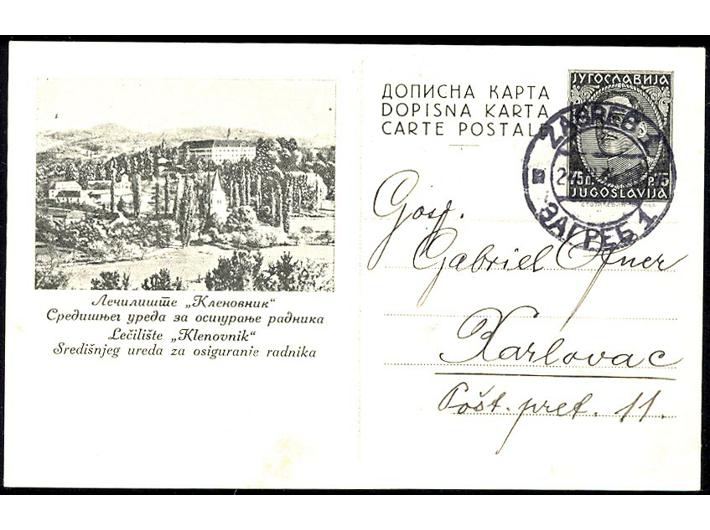 Лечилиште „Кленовник“
Средишњег уреда за осигурање радника
Lečilište „Klenovnik“
Središnjeg ureda za osiguranje radnika
ДОПИСНА КАРТА
DOPISNA KARTA
CARTE POSTALE
ЈУГОСЛАВИЈА
JUGOSLAVIJA
ZAGREB 1
ЗАГРЕБ 1
Gosp.
Gabriel Ofner
Karlovac
Pošt. pret. 11.